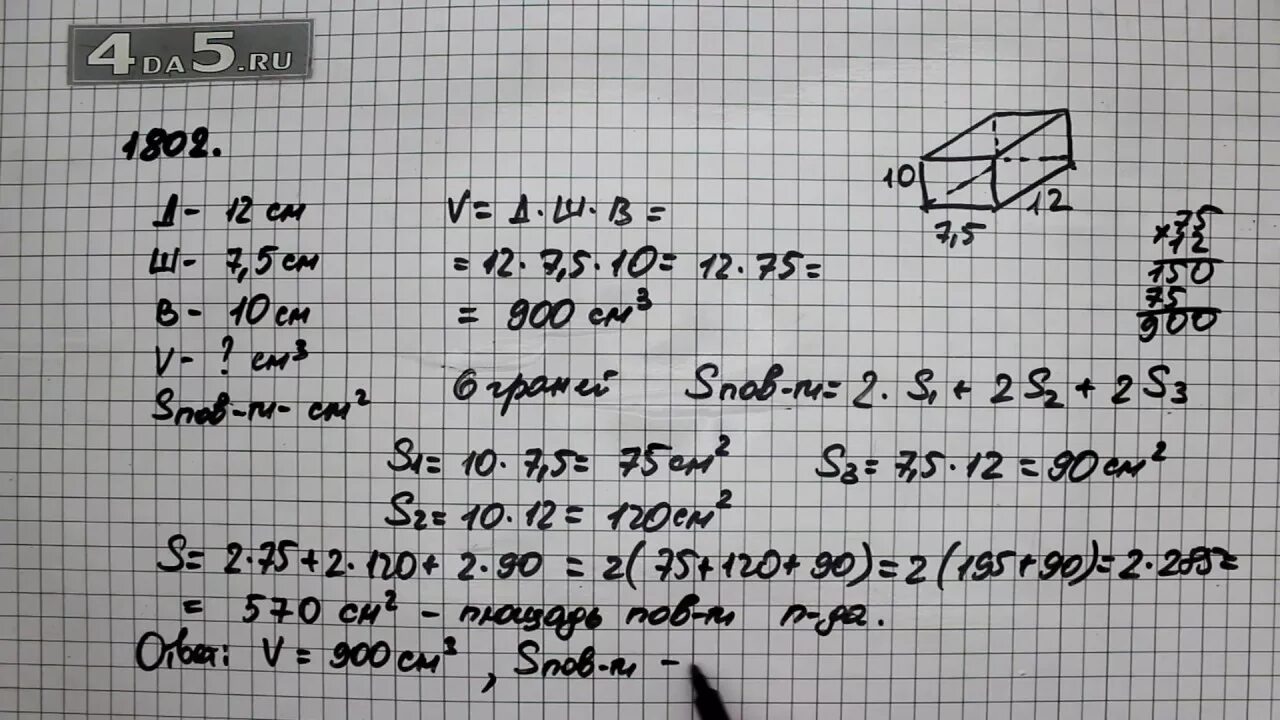 4DA5.RU
1802.
Д- 12 см
Ш- 7,5 см
В- 10 см
V- ? см³
Sпов-ти- см²
V= Д·Ш·В =
= 12·7,5·10= 12·75=
= 900 см³
10
7,5
12
×75
12
150
75
900
6 граней Sпов-ти= 2·S₁+ 2S₂+ 2S₃
S₁= 10·7,5= 75 см² S₃= 7,5·12 = 90 см²
S₂= 10·12= 120 см²
S= 2·75+2·120+ 2·90 = 2(75+120+90)=2(195+90)=2·285=
= 570 см² - площадь пов-ти п-да.
Ответ: V = 900 см³, Sпов-ти -